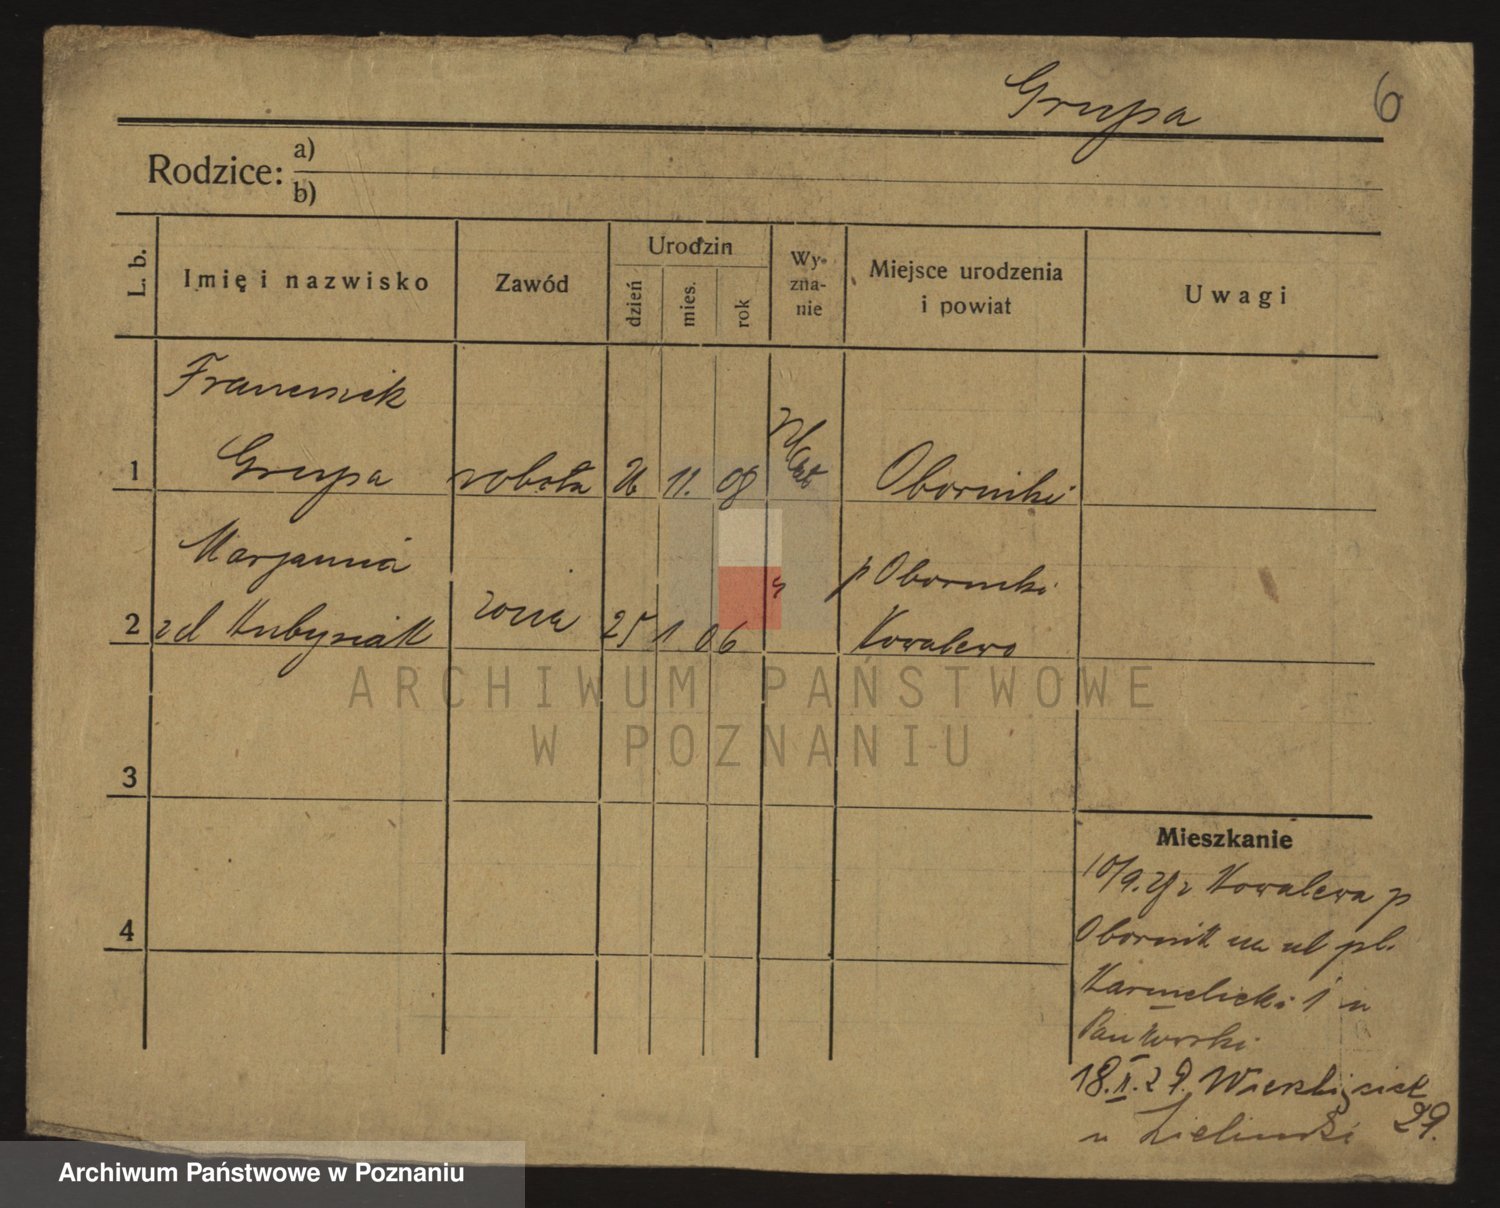 Grupa
6
Rodzice: a)
b)
L. b.
Imię i nazwisko
Zawód
Urodzin
dzień
mies.
rok
Wy-
zna-
nie
Miejsce urodzenia
i powiat
Uwagi
Franciszek
1 Grupa robotn 26 11. 08 Oborniki
Marjanna
p Oborniki
2 zd Kubysiak zona 25 1. 06 Kowalewo
3
4
Mieszkanie
10/9. z Kowalewa p
Obornik na ul pl.
Karmelicki 1 u
18. X. 29. Wierzbięcice
29.
u Zielinski
ARCHIWUM PAŃSTWOWE
W POZNANIU
Archiwum Państwowe w Poznaniu